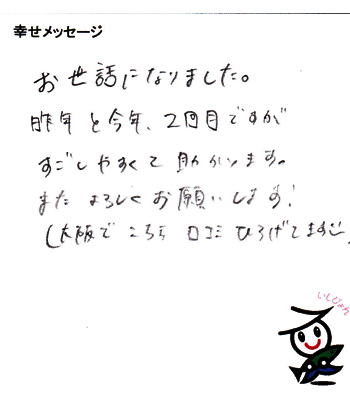 幸せメッセージ
お世話になりました。
昨年と今年、2回目ですが
すごしやすくて助かります。
また よろしくお願いします!
(大阪で こちら 口コミ ひろげてます
いしじょん